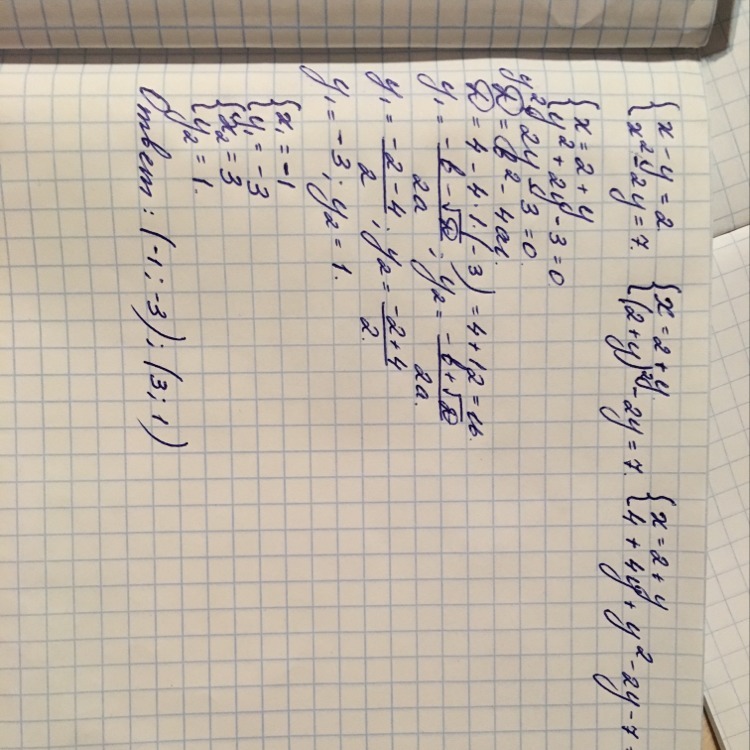 {x - y = 2 {x = 2 + y {x = 2 + y
{x² - 2y = 7. {(2 + y)² - 2y = 7. {4 + 4y + y² - 2y - 7 =
{x = 2 + y
{y² + 2y - 3 = 0
y² 2y 3 = 0.
D = b² - 4ac.
D = 4 - 4·1·(-3) = 4 + 12 = 16.
y₁ = (-b - √D)/2a ; y₂ = (-b + √D)/2a.
y₁ = (-2 - 4)/2 ; y₂ = (-2 + 4)/2.
y₁ = -3 ; y₂ = 1.
{x₁ = -1
{y₁ = -3
{x₂ = 3
{y₂ = 1.
Ответ: (-1; -3); (3; 1)